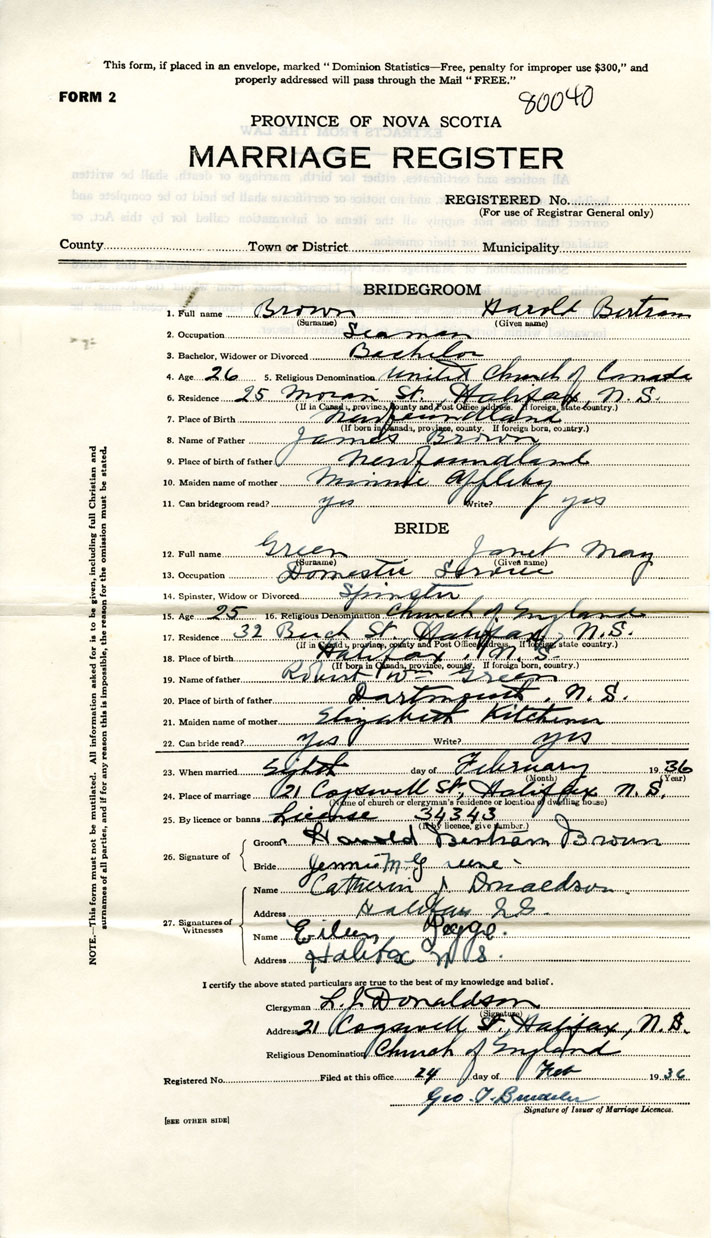 This form, if placed in an envelope, marked "Dominion Statistics—Free, penalty for improper use $300," and
properly addressed will pass through the Mail "FREE."
FORM 2
80040
PROVINCE OF NOVA SCOTIA
MARRIAGE REGISTER
REGISTERED No.
(For use of Registrar General only)
County Town or District Municipality
BRIDEGROOM
1. Full name Brown Harold Bertram
(Surname) (Given name)
2. Occupation Seaman
3. Bachelor, Widower or Divorced Bachelor
4. Age 26 5. Religious Denomination United Church of Canada
6. Residence 25 Moran St. Halifax, N.S.
(If in Canada, province, county and Post Office address. If foreign, state country.)
7. Place of Birth Newfoundland
(If born in Canada, province, county. If foreign born, country.)
8. Name of Father James Brown
9. Place of birth of father Newfoundland
10. Maiden name of mother Minnie Appleby
11. Can bridegroom read? yes Write? yes
BRIDE
12. Full name Green Janet May
(Surname) (Given name)
13. Occupation Domestic Service
14. Spinster, Widow or Divorced Spinster
15. Age 25 16. Religious Denomination Church of England
17. Residence 32 Birch St. Halifax, N.S.
(If in Canada, province, county and Post Office address. If foreign, state country.)
18. Place of birth Halifax, N.S.
(If born in Canada, province, county. If foreign born, country.)
19. Name of father Robert Wm Green
20. Place of birth of father Dartmouth, N.S.
21. Maiden name of mother Elizabeth Kitchener
22. Can bride read? yes Write? yes
23. When married Eighth day of February 1936
(Month) (Year)
24. Place of marriage 21 Cogswell St, Halifax N.S.
(Name of church or clergyman's residence or location of dwelling house)
25. By licence or banns License 34343
(If by licence, give number.)
26. Signature of
Groom Harold Bertram Brown
Bride Jennie M Greene
27. Signatures of Witnesses
Name Catherin J. Donaldson
Address Halifax N.S.
Name Eileen
Address Halifax N.S.
I certify the above stated particulars are true to the best of my knowledge and belief.
Clergyman L. J. Donaldson
(Signature)
Address 21 Cogswell St, Halifax, N.S.
Religious Denomination Church of England
Registered No. Filed at this office 24 day of Feb 1936
Geo. T.
Signature of Issuer of Marriage Licences.
[SEE OTHER SIDE]
NOTE.—This form must not be mutilated. All information asked for is to be given, including full Christian and
surnames of all parties, and if for any reason this is impossible, the reason for the omission must be stated.